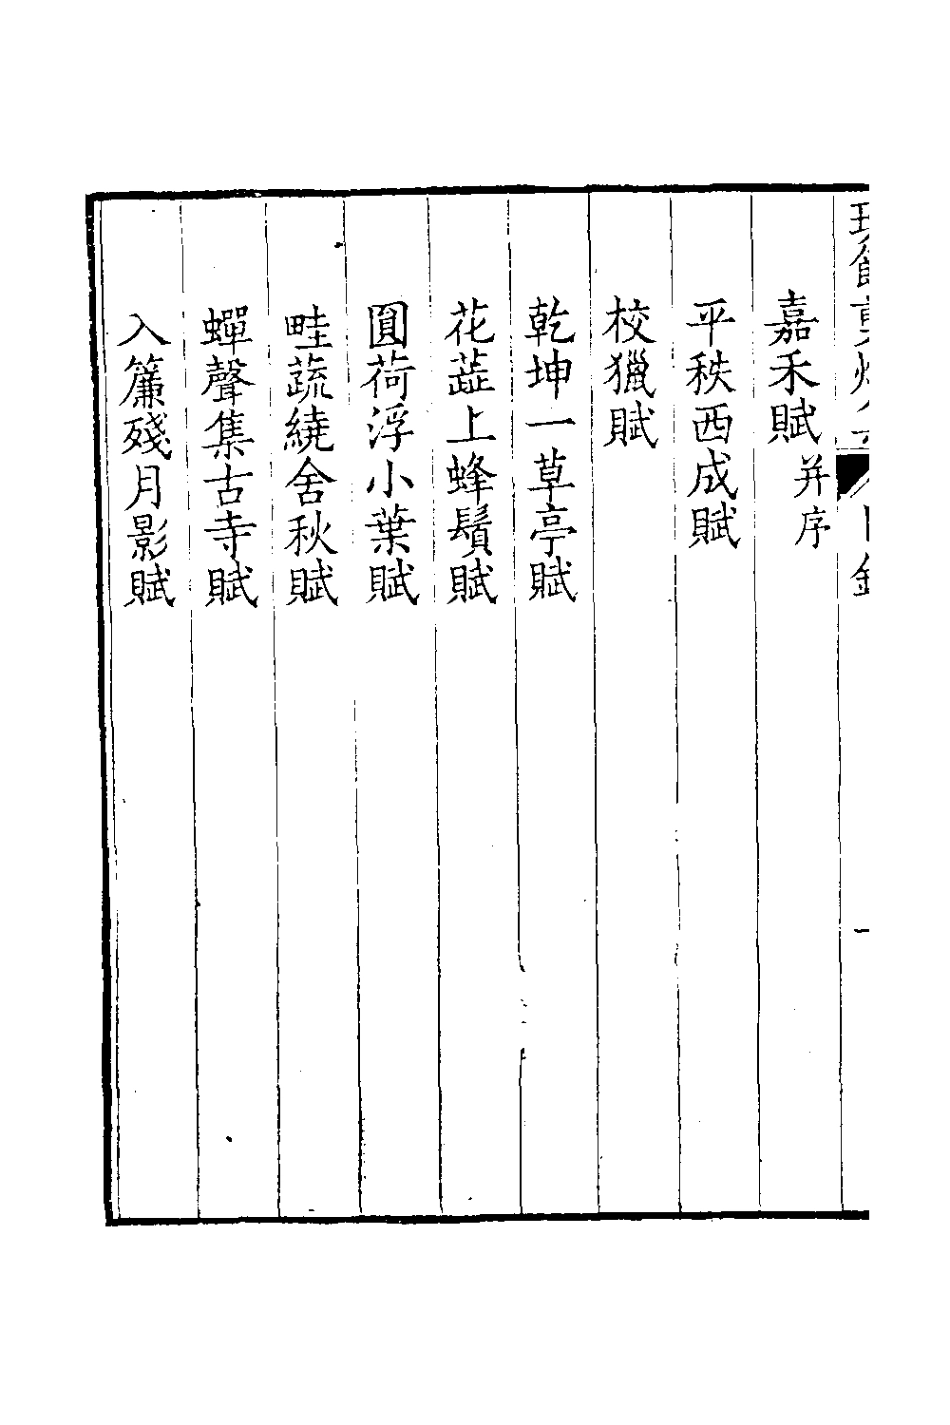 嘉禾賦并序
平秩西成賦
校獵賦
乾坤一草亭賦
花蕋上蜂鬚賦
圓荷浮小葉賦
畦蔬繞舍秋賦
蟬聲集古寺賦
入簾殘月影賦